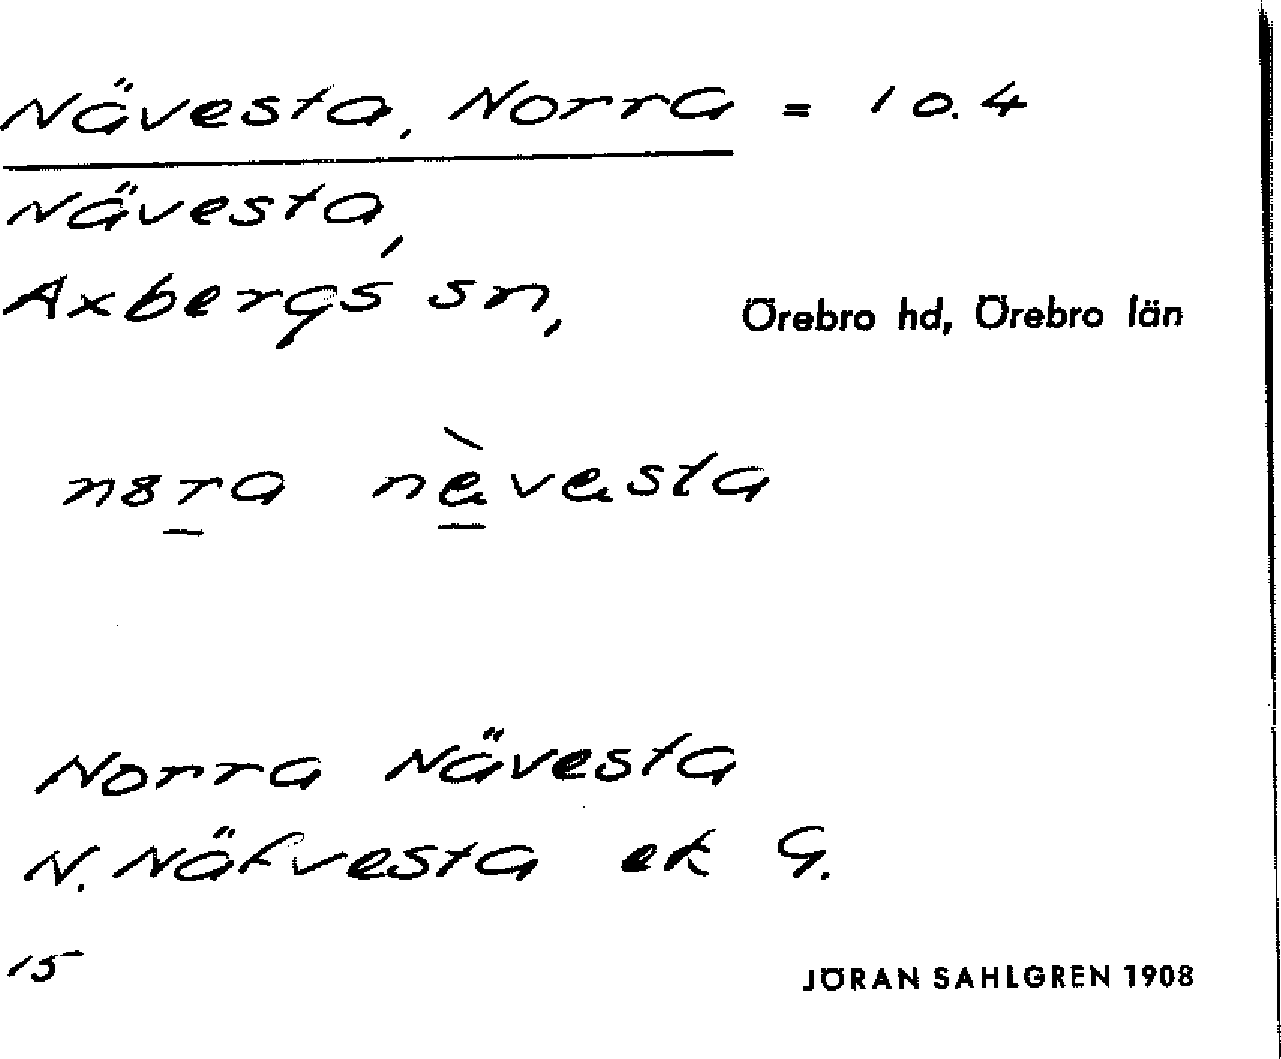 Nävesta, Norra = 10.4
Nävesta,
Axbergs sn, Örebro hd, Örebro län
Norra Nävesta
N. Näfvesta ek G.
15
JÖRAN SAHLGREN 1908